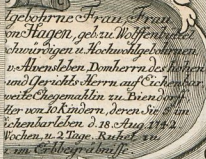 lgebohrne Frau, Frau
om Hagen, geb. zu Wolffenbüttel
chwürdigen u. Hochwohlgebohrnen
v. Alvensleben, Domherrn des hohen
und Gerichts Herr auf Eichenbar
weite Ehegemahlin zu Biendorff
tter von 10 Kindern, deren Sie 5 im
ichenbarleben d. 18. Aug. 1742
Wochen, u. 2 Tage. Ruhet zu
im Erbbegräbnisse